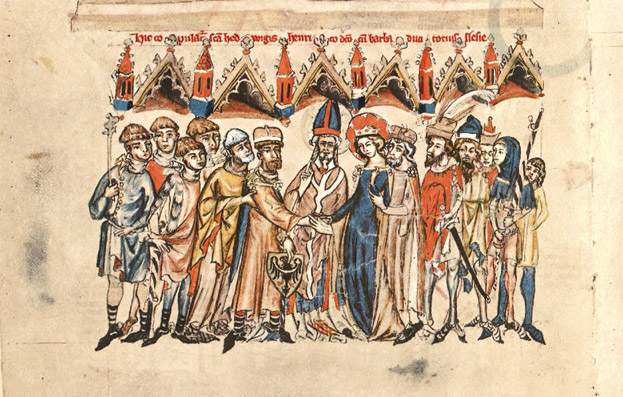 Hic co pulat᷑ scā hed wigis henri co dco cū barba duci totius slesie